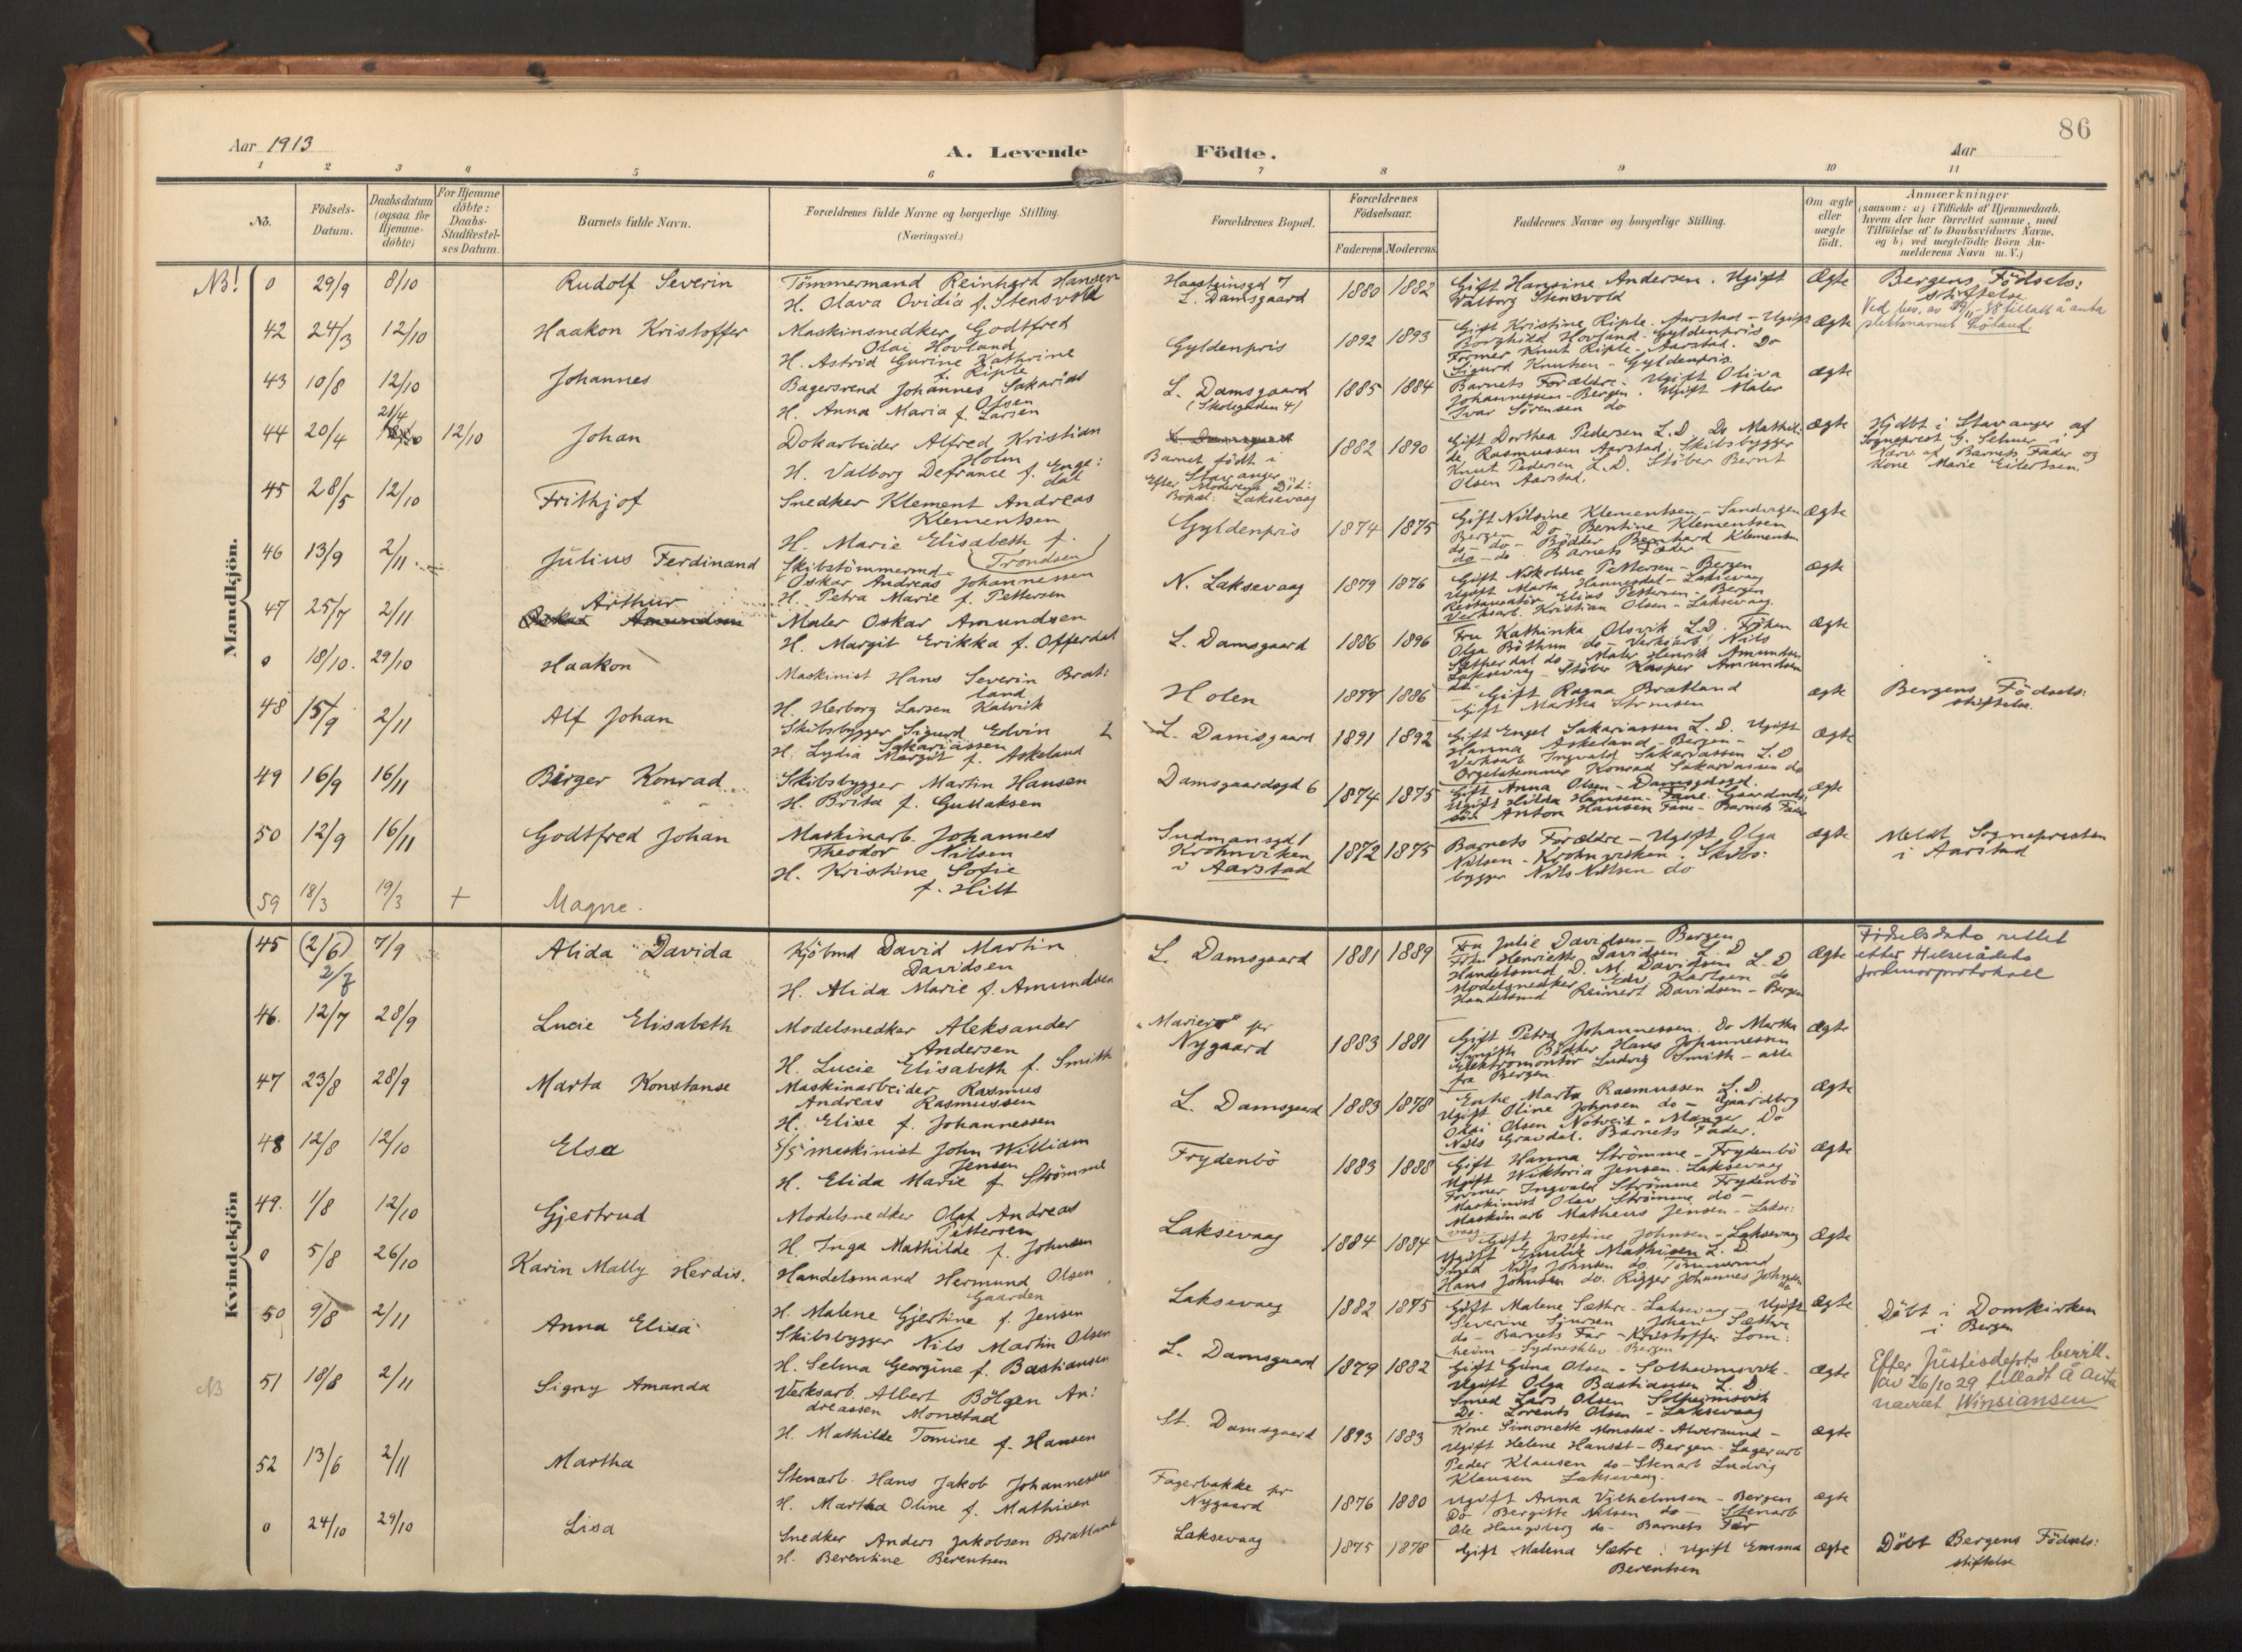 86
Aar 1913
A. Levende Födte.
Aar
1 2 3 4 5 6 7 8 9 10 11
No.
Födsels-
Datum.
Daabsdatum
(ogsaa for
Hjemme-
döbte)
For Hjemme
döbte:
Daabs-
Stadfæstel-
ses Datum.
Barnets fulde Navn.
Forældrenes fulde Navne og borgerlige Stilling.
(Næringsvei.)
Forældrenes Bopæl.
Forældrenes
Födselsaar.
Faderens Moderens
Faddernes Navne og borgerlige Stilling.
Om ægte
eller
uægte
födt.
Anmærkninger
(saasom: a) i Tilfælde af Hjemmedaab,
hvem der har forrettet samme, med
Tilföielse af to Daabsvidners Navne,
og b) ved uægtefödte Börn An-
melderens Navn m. V.)
Mandkjön.
NB! 0 29/9 8/10 Rudolf Severin
Tömmermand Reinhard Hansen
H. Olava Ovidia f. Stensvold
Haasteinsgd 7
L. Damsgaard
1880 1882
Gift Hansine Andersen. Ugift
Valborg Stensvold
Ægte
Bergens Födsels:
stiftelse
42 24/3 12/10 Haakon Kristoffer
Maskinsnedker Godtfred
Olai Hovland
H. Astrid Gurine Kathrine
f. Riple
Gyldenpris
1892 1893
Gift Kristine Riple. Aarstad - Ugift
Borghild Hovland. Gyldenpris
Former Knut Riple. Aarstad. Do
Sigurd Knutsen - Gyldenpris.
Ægte
43 10/8 12/10 Johannes
Bagersvend Johannes Sakarias
Olsen
H. Anna Maria f. Larsen
L. Damsgaard
(Skolegaden 4)
1885 1884
Barnets Forældre. Ugift Oliva
Johannessen - Bergen. Ugift Maler
Ivar Sörensen do
ægte
44 20/4 21/4 12/10 Johan
Dokarbeider Alfred Kristian
Holm
H. Valborg Defrance f. Enge:
dal
L. Damsgaard
Barnet födt i
Stavanger
Bopæl: Laksevaag
1882 1890
Gift Dorthea Pedersen L.D. Do Mathil:
de Rasmussen Aarstad. Skibsbygger
Knut Pedersen L.D. Stöber Bernt
Olsen Aarstad.
ægte
Hjdbt i Stavanger af
Sogneprest G. Selmer i
Nærv. af Barnets Fader og
Kone Marie Eilertsen.
45 28/5 12/10 Frithjof
Snedker Klement Andreas
Klementsen
H. Marie Elisabeth f.
Trondsen
Gyldenpris
1874 1875
Gift Nilsine Klementsen - Sandvigen
Bergen Do Berntine Klementsen
do - do - Bödker Bernhard Klementsen
do - do. Barnets Fader -
Ægte
46 13/9 2/11 Julius Ferdinand
Skibstömmermd
Oskar Andreas Johannessen
H. Petra Marie f. Pettersen
N. Laksevaag
1879 1876
Gift Nikoline Pettersen - Bergen
Ugift Marta Hannesdal - Laksevaag
Restauratör Elias Pettersen - Bergen
Verksarb. Kristian Olsen - Laksevaag.
ægte
47 25/7 2/11 Arthur
Oskar Amundsen
Maler Oskar Amundsen
H. Margit Erikka f. Offerdal
L. Damsgaard
1886 1896
Fru Kathinka Olsvik L.D. Fröken
Olga Böthun do - Verksarb. Nils
do - Maler Henrik Amundsen
Laksevaag - Stöber Kasper Amundsen
do
ægte
0 18/10. 29/10 Haakon
Maskinist Hans Severin Brat:
land
H. Herborg Larsen Kalvik
Holen
1877 1886
Gift Ragna Bratland
Gift Martha
ægte
Bergens Födsels:
stiftelse.
48 15/9 2/11 Alf Johan
Skibsbygger Sigurd Edvin
Sakariassen
H. Lydia Margit f. Askeland
L. Damsgaard
1891 1892
Gift Engel Sakariassen L.D. Ugift
Hanna Askeland - Bergen -
Verksarb. Ingvald Sakariassen L.D
Konrad Sakariassen do
ægte
49 16/9 16/11 Birger Konrad
Skibsbygger Martin Hansen
H. Brita f. Gullaksen
Damsgaardsgd 6
1874 1875
Gift Anna Olsen - Damsgdsgd.
Ugift Hilda Hansen - Fane. Gaardmds
sön Anton Hansen Fane - Barnets Fader
ægte
50 12/9 16/11 Godtfred Johan
Maskinarb. Johannes
Theodor Nilsen
H. Kristine Sofie
f. Hilt
Sudmansgd 1
Krohnviken
i Aarstad
1872 1875
Barnets Forældre - Ugift Olga
Nilsen - Krohnviken. Skibs:
bygger Nils Nilsen do
ægte
Meldt Sognepresten
i Aarstad
59 18/3 19/3 + Magne.
Kvindekjön
45 (2/6) 7/9 Alida Davida
2/7
Kjöbmd David Martin
Davidsen
H. Alida Marie f. Amundsen
L. Damsgaard
1881 1889
Fru Julie Davidsen - Bergen
Fru Henriette Davidsen L.D
Handelsmd D. M. Davidsen L.D
Modelsnedker Edv. Karlsen do
Handelsmd Reinert Davidsen - Bergen
Ægte
Födselsdato rettet
etter Helserådets
jordmorprotokoll
46. 12/7 28/9 Lucie Elisabeth
Modelsnedker Aleksander
Andersen
H. Lucie Elisabeth f. Smith
pr
Nygaard
1883 1881
Gift Petra Johannessen. Do Martha
Smith Bödker Hans Johannessen
Elektromontör Ludvig Smith - alle
fra Bergen.
Ægte
47 23/8 28/9 Marta Konstanse
Maskinarbeider Rasmus
Andreas Rasmussen
H. Elise f. Johannessen
L. Damsgaard
1883 1878
Enke Marta Rasmussen L.D.
Ugift Oline Johnsen do - Gaardbrg
Olai Olsen Nötveit - Manger Do
Nils Gravdal. Barnets Fader.
Ægte
48 12/8 12/10 Elsa
maskinist John William
Jensen
H. Elida Marie f Strömme
Frydenbö
1883 1888
Gift Hanna Strömme - Frydenbö
Ugift Wiktoria Jensen. Laksevaag
Former Ingvald Strömme Frydenbö
Maskinist Olav Strömme do -
Maskinarb Matheus Jensen - Lakse:
vaag
Ægte
49. 1/8 12/10 Gjertrud
Modelsnedker Olaf Andreas
Pettersen
H. Inga Mathilde f. Johnsen
Laksevaag
1884 1884
Gift Josefine Johnsen - Laksevaag
Ugift Emilie Mathisen L.D.
Smed Nils Johnsen do. Tömmermd
Hans Johnsen do. Rigger Johannes Johnsen
do
Ægte
0 5/8 26/10 Karin Mally Herdis.
Handelsmand Hermund Olsen
Gaarden
H. Malene Gjertine f. Jensen
Laksevaag
1882 1875
Gift Malene Sæthre - Laksevaag - Ugift
Severine Sjursen Johan Sæthre
do - Barnets Far - Kristoffer Lom:
heim - Sydnesklev - Bergen
Ægte
Döbt i Domkirken
i Bergen
50 9/8 2/11 Anna Elisa
Skibsbygger Nils Martin Olsen
H. Selma Georgine f. Bastiansen
L. Damsgaard
1879 1882
Gift Gina Olsen - Solheimsvik -
Ugift Olga Bastiansen L.D.
Smed Lars Olsen Solheimsvik
Do. Lorents Olsen - Laksevaag
Ægte
Efter Justisdepts bevill.
av 26/10 29 tilladt å anta
navnet Winsiansen
NB 51 18/8 2/11 Signy Amanda
Verksarb. Albert Bölgen An:
dreassen Monstad
H. Mathilde Tomine f. Hansen
St. Damsgaard
1893 1883
Kone Simonette Monstad - Alversund -
Ugift Helene Hansen - Bergen - Lagerarb
Peder Klausen do - Stenarb Ludvig
Klausen Laksevaag.
Ægte
52 13/6 2/11 Martha
Stenarb. Hans Jakob Johannessen
H. Martha Oline f. Mathisen
Fagerbakke pr
Nygaard
1876 1880
Ugift Anna Vilhelmsen - Bergen
Do Bergitte Nilsen do - Stenarb
Ole Haugsberg do - Barnets Far
ægte
0 24/10 29/10 Lisa
Snedker Anders Jakobsen Bratland
H. Berentine Berentsen
Laksevaag
1875 1878
Gift Malena Sætre. Ugift Emma
Berentsen
ægte
Döbt Bergens Födsels:
stiftelse